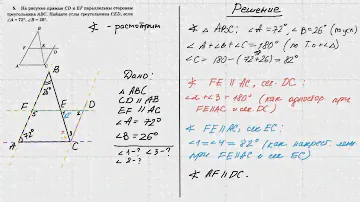 5. На рисунке прямые CD и EF параллельны сторонам
треугольника ABC. Найдите углы треугольника CED, если
∠A = 72°, ∠B = 26°.
∢ - рассмотрим
Дано:
△ ABC
CD ∥ AB
EF ∥ AC
∠A = 72°
∠B = 26°
∠1-? ∠3-?
∠2-?
B
F
E
D
A
C
72°
Решение
∢ △ ABC: ∠A = 72°, ∠B = 26° (по усл)
∠A + ∠B + ∠C = 180° (по Т.о ∠ △)
∠C = 180 - (72+26) = 82°
∢ FE ∥ AC, сек. DC:
∠2 + ∠3 = 180° (как одностор при
FE∥AC и сек DC)
∢ FE ∥ AC, сек. EC:
∠1 = ∠4 = 82° (как накрест. леж
при FE∥AC и сек EC)
∢ AF ∥ DC.